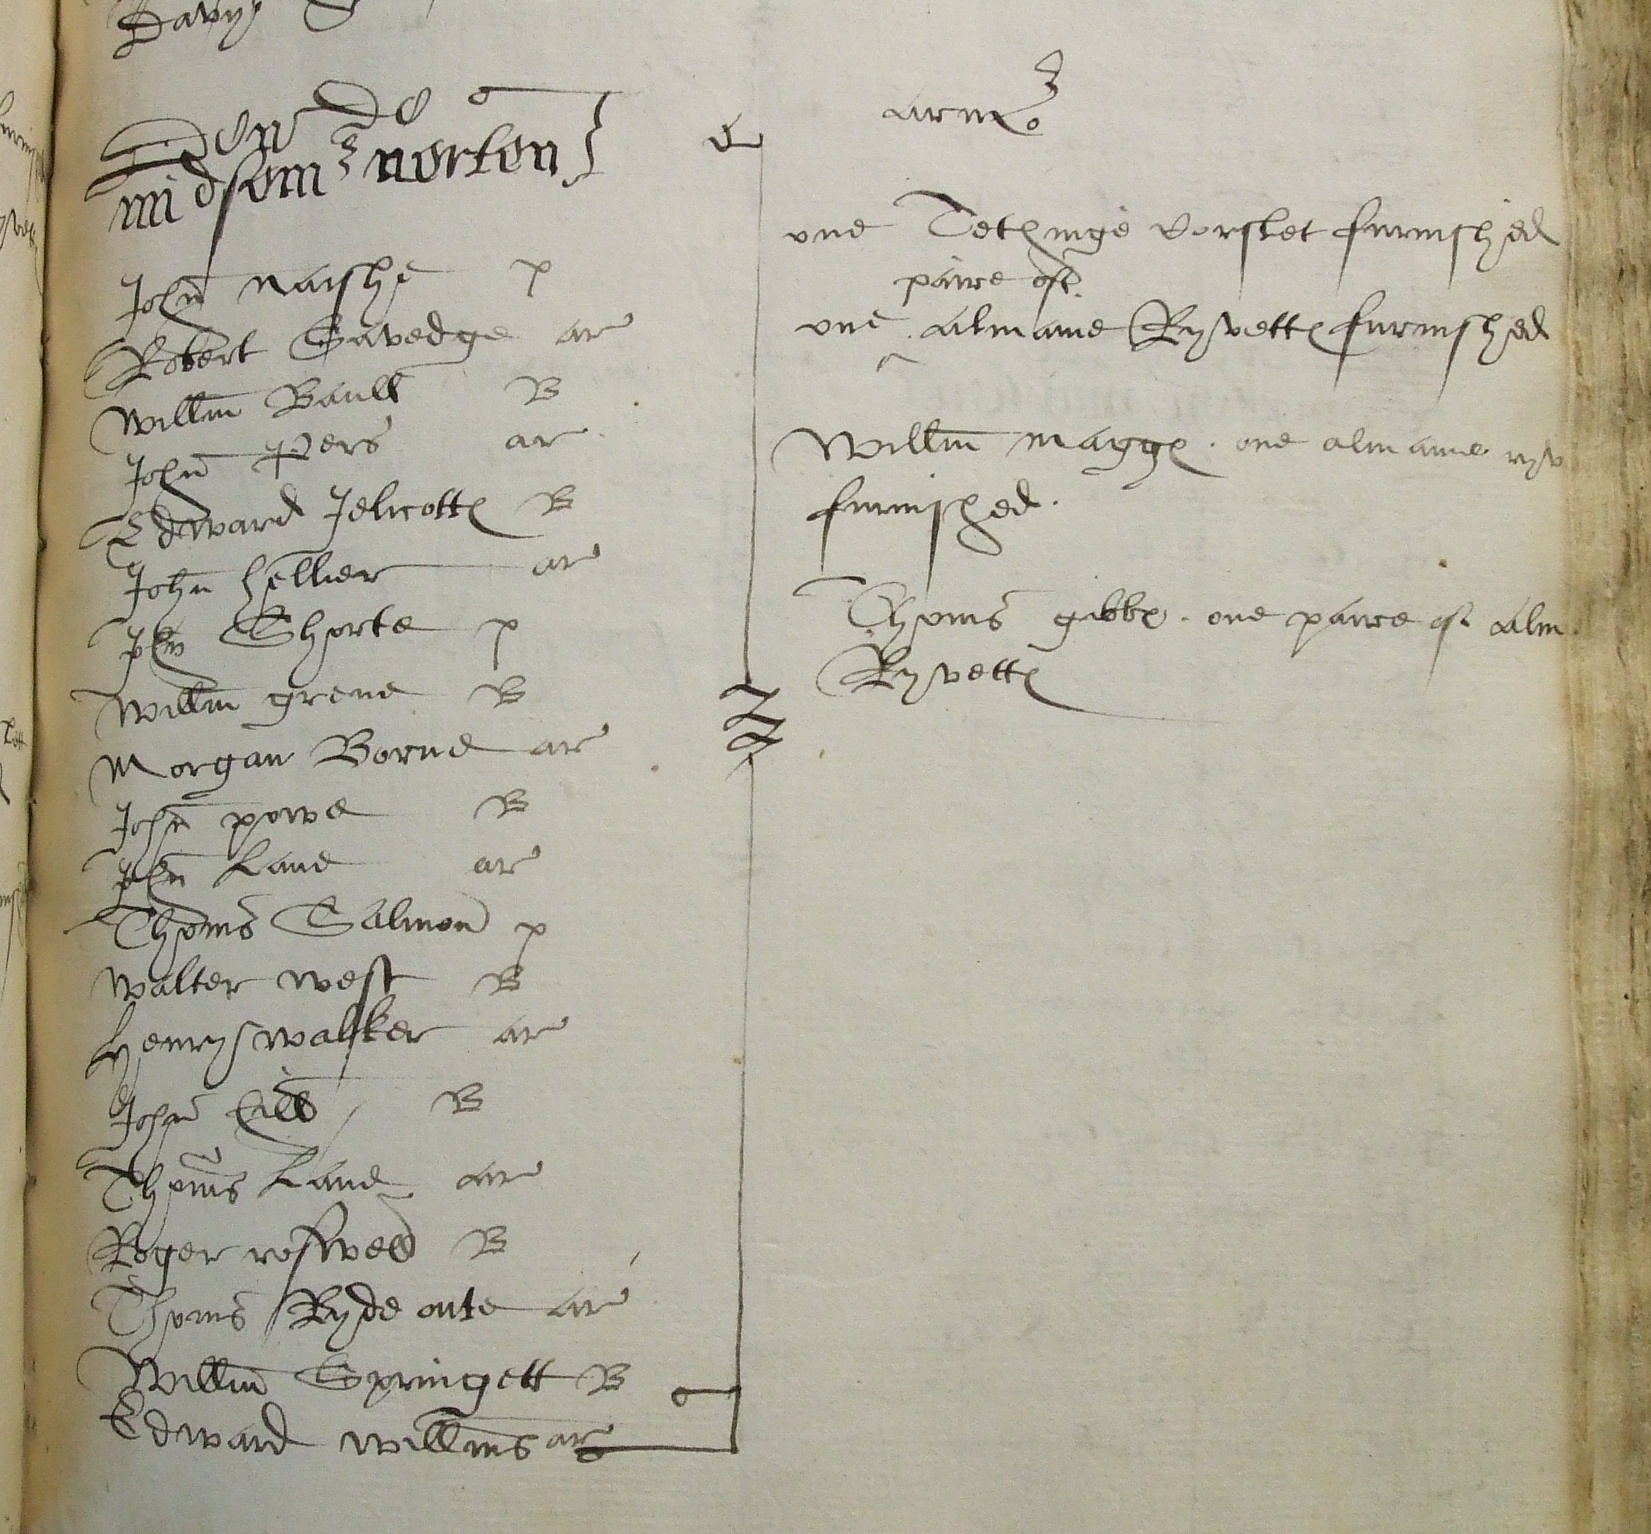 Davys
Dow de
midsom norton
John Naishe p
Robert Savedge ar
Willm Baull B
John Pers ar
Edward Jelicotte B
John Hellier ar
John Shorte p
Willm grene B
Morgan Borne ar
John powe B
John Lane ar
Thoms Salmon p
Walter West B
Henry Walker ar
John B
Thoms Lane ar
Roger B
Thoms Ryde oute ar
Willm Springett B
Edward Willms ar
armor
one Tethinge Corslet furnished
paire of
one almane Ryvettes furnished
Willm Magges . one almane ryv
furnished .
Thoms gibbes . one paire of alm
Ryvettes